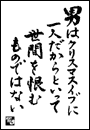 男はクリスマスイブに
一人だからといって
世間を恨む
ものではない